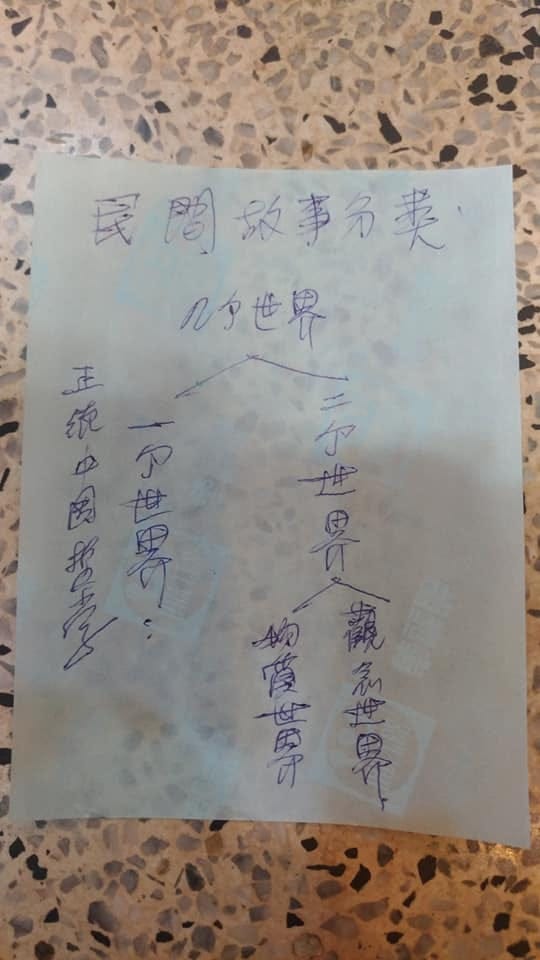 民間故事分类
几个世界
二个世界
觀念世界
物質世界
一个世界：
正統中國哲学